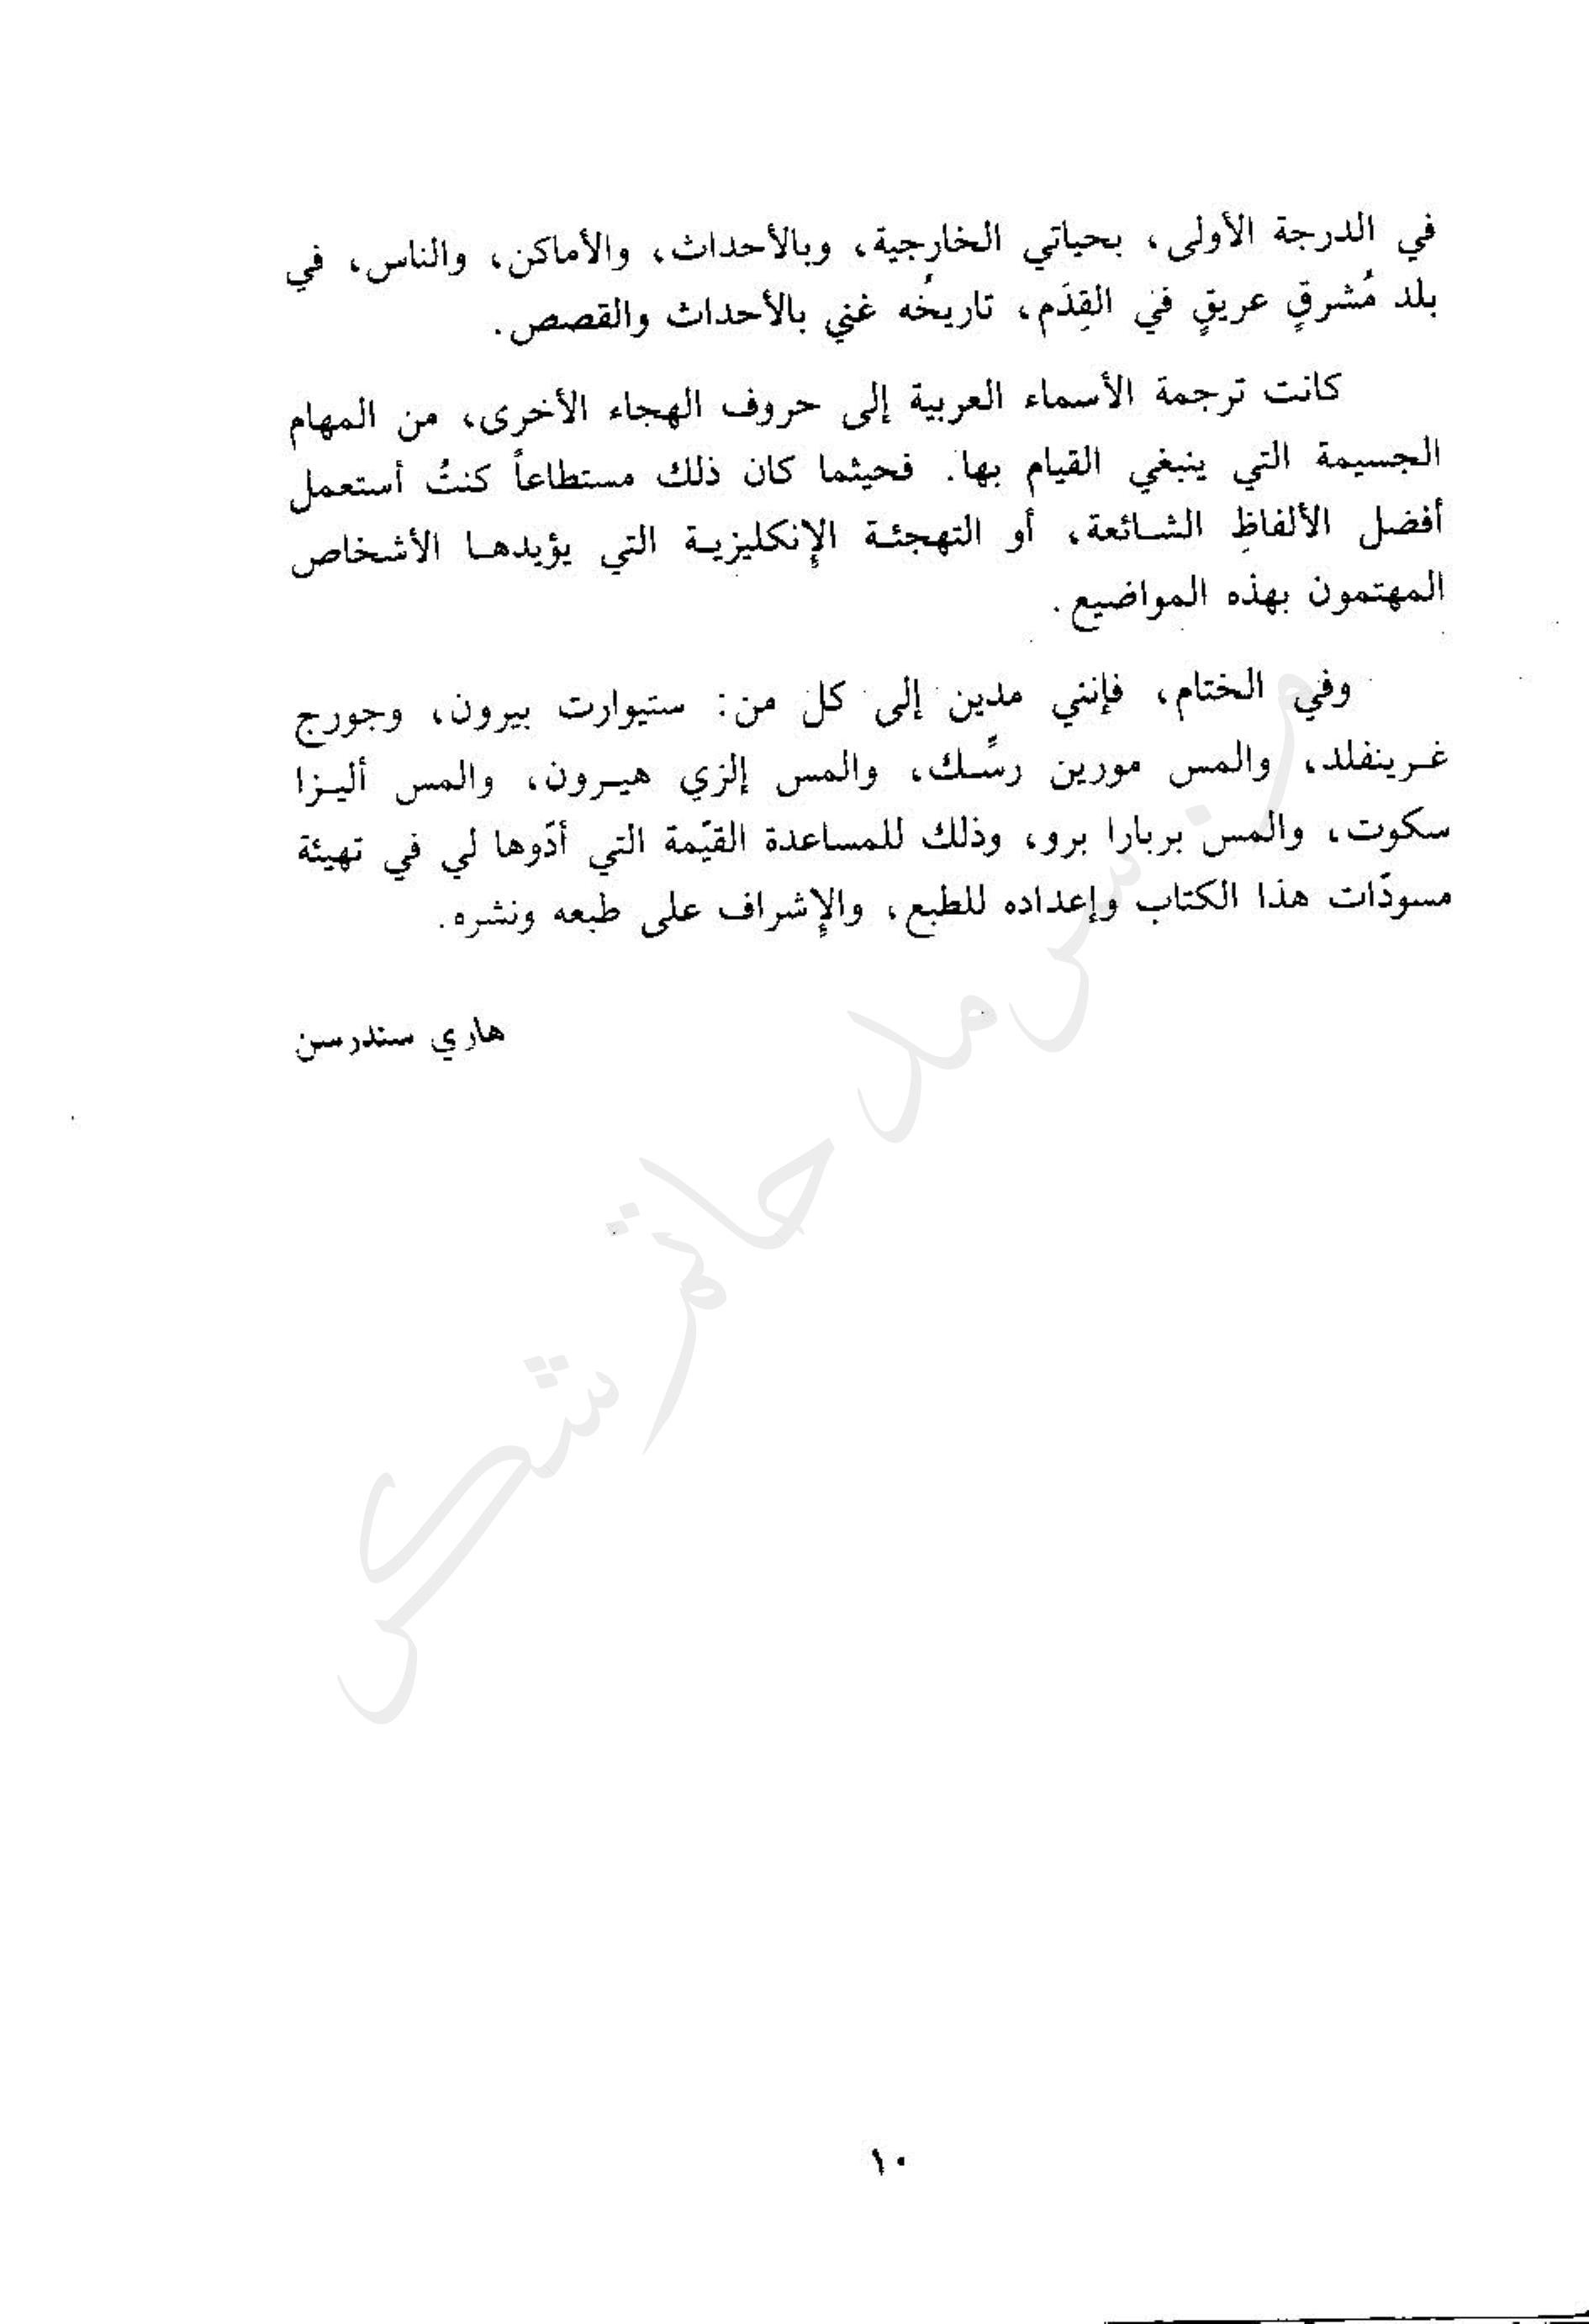 في الدرجة الأولى، بحياتي الخارجية، وبالأحداث، والأماكن، والناس، في
بلد مُشرقٍ عريقٍ في القِدَم، تاريخُه غني بالأحداث والقصص.
كانت ترجمة الأسماء العربية إلى حروف الهجاء الأخرى، من المهام
الجسيمة التي ينبغي القيام بها. فحيثما كان ذلك مستطاعاً كنتُ أستعمل
أفضل الألفاظِ الشائعة، أو التهجئة الإنكليزية التي يؤيدها الأشخاص
المهتمون بهذه المواضيع.
وفي الختام، فإنني مدين إلى كل من: ستيوارت بيرون، وجورج
غرينفلد، والمس مورين رسّك، والمس إلزي هيرون، والمس أليزا
سكوت، والمس بربارا برو، وذلك للمساعدة القيّمة التي أدّوها لي في تهيئة
مسودّات هذا الكتاب وإعداده للطبع، والإشراف على طبعه ونشره.
هاري سندرسن
من سرمد حاتم شكر
١٠